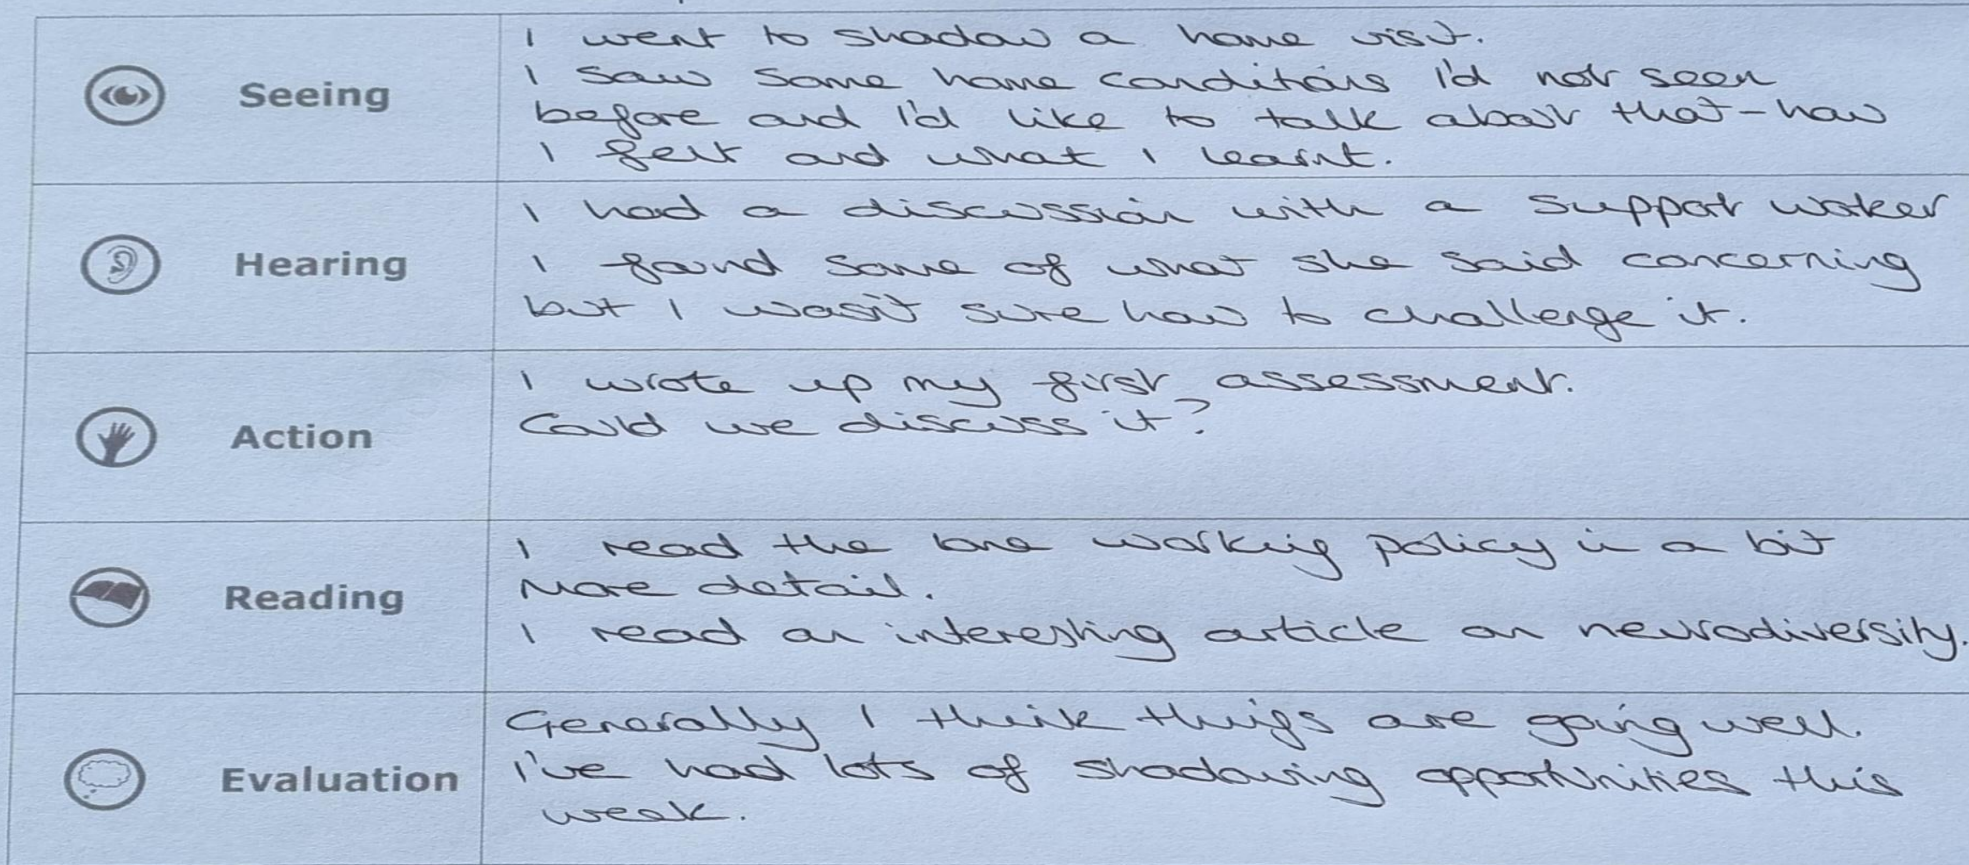 Seeing
I went to shadow a home visit.
I saw some home conditions I'd not seen
before and I'd like to talk about that - how
I felt and what I learnt.
Hearing
I had a discussion with a support worker
I found some of what she said concerning
but I wasn't sure how to challenge it.
Action
I wrote up my first assessment.
Could we discuss it?
Reading
I read the lone working policy in a bit
more detail.
I read an interesting article on neurodiversity.
Evaluation
Generally I think things are going well.
I've had lots of shadowing opportunities this
week.